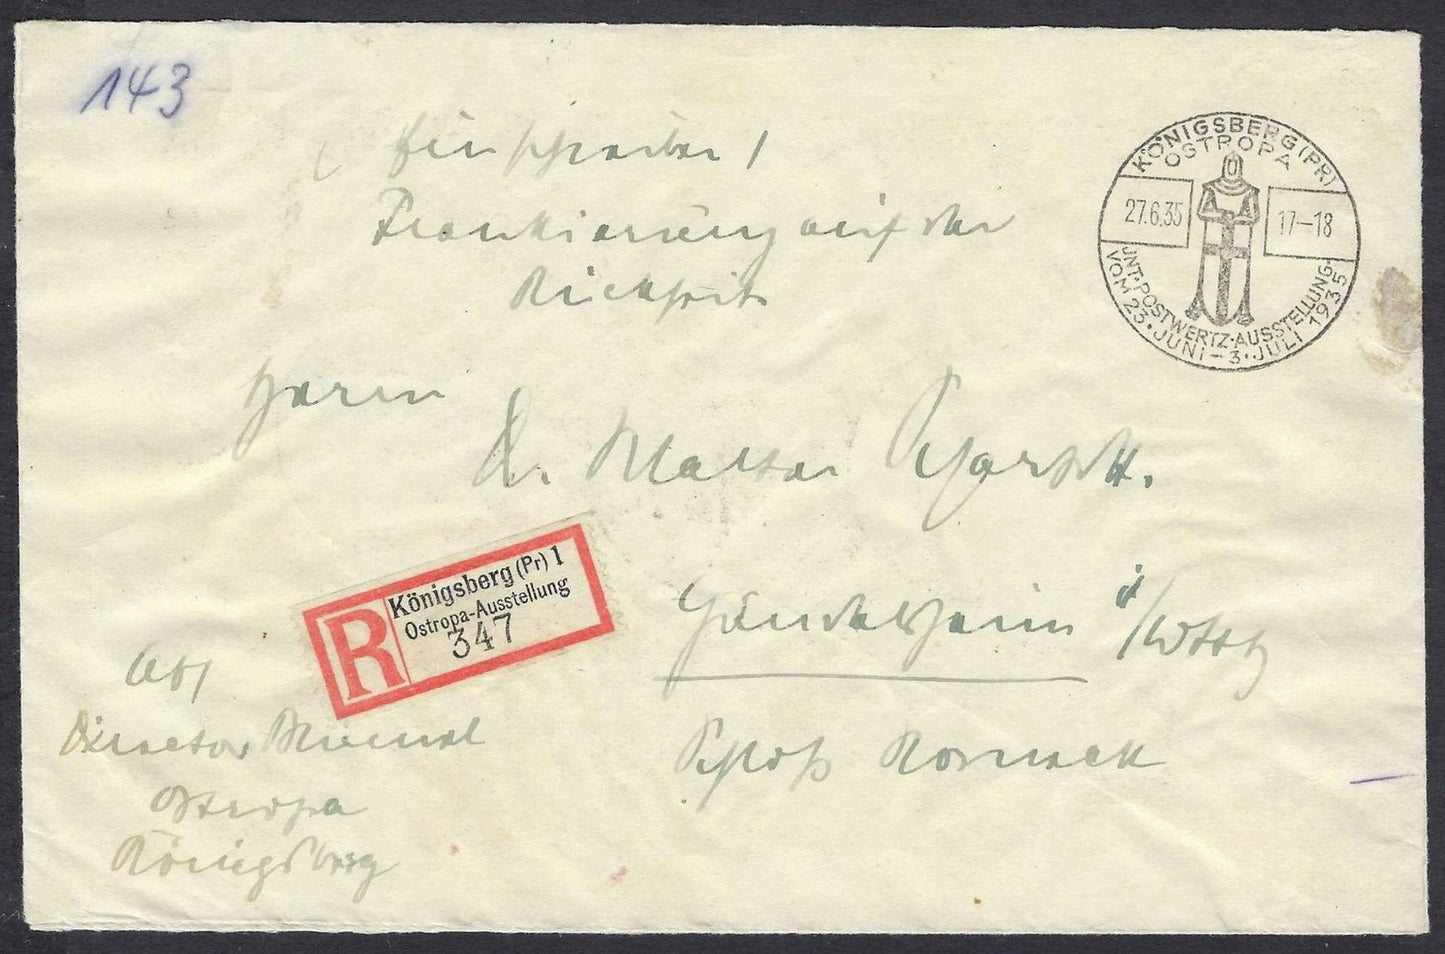 143
Einschreiben!
Frankierung auf der
Rückseite
KÖNIGSBERG (PR)
OSTROPA
27.6.35
17–18
JNT·POSTWERTZ·AUSSTELLUNG·
VOM 23·JUNI–3·JULI 1935
Herrn
Dr. Walter
Gundelsheim
Schloß Horneck
R
Königsberg (Pr) 1
Ostropa-Ausstellung
347
Abs
Director
Ostropa
Königsberg